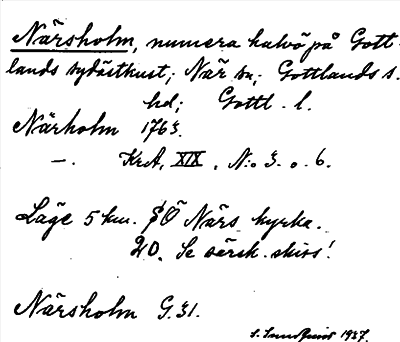 Närsholm, numera halvö på Gott-
lands sydöstkust; När sn; Gottlands s.
hd; Gottl. l.
Närholm 1763.
—. KrA, XIX, N:o 3. o. 6.
Läge 5 km. SÖ Närs kyrka.
20. Se särsk. skiss!
Närsholm G.31.
S. Lundqvist 1937.